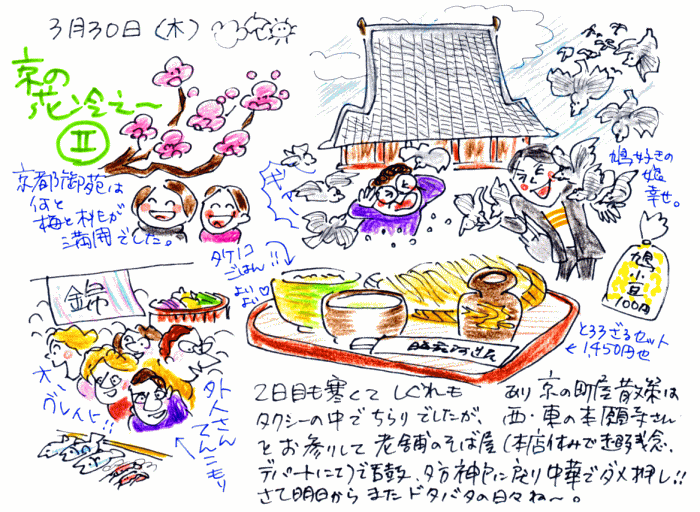 3月30日(木)
京の
花冷え〜
Ⅱ
京都御苑は
何と
梅と桃が
満開でした。
ギャー
鳩好きの
姫
幸せ。
鳩
小豆
100円
タケノコ
ごはん!!
よい
よい♡
とろろざるセット
← 1,450円也
錦
オー
グレイト!!
外人さん
てんこもり
2日目も寒くて しぐれも あり 京の町屋散策は
タクシーの中でちらりでしたが、西・東の本願寺さん
とお参りして 老舗のそば屋(本店休みで超残念、
デパートにて)で舌鼓、夕方神戸に戻り中華でダメ押し!!
さて明日から またドタバタの日々ね〜。